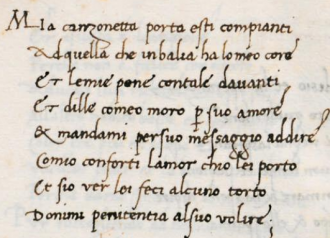 Mia canzonetta porta esti compianti
Ad quella che inbalia ha lo meo core
Et le mie pene contale davanti
Et dille comeo moro p suo amore
& mandami per suo messaggio addire
Comio conforti lamor chio lei porto
Et sio ver lei feci alcuno torto
Donimi penitentia al suo volire